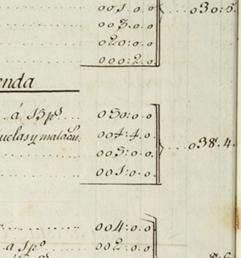 001.0.0 030:5.
003.0.0
020:0.0
000:2.0
enda
á 13 p.s 030:0.0
uelas y malacu. 004:4.0 038.4.
003:0.0
001:0.0
004:0.0
á 1 p.o 002:0.0